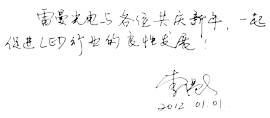 雷曼光电与各位共庆新年，一起
促进LED行业的良性发展！
2012.01.01.